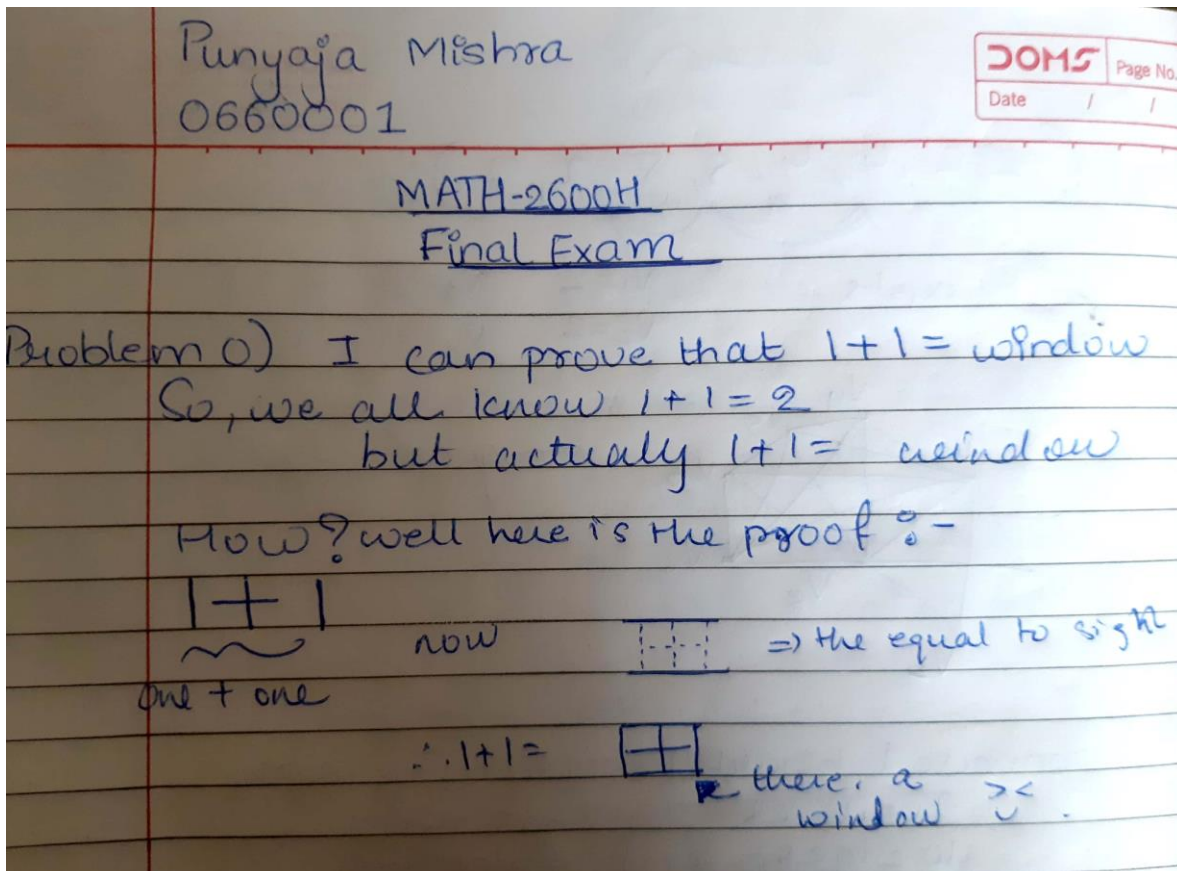 Punyaja Mishra
0660001
DOMS Page No.
Date / /
MATH-2600H
Final Exam
Problem 0) I can prove that 1+1 = window
So, we all know 1+1=2
but actually 1+1= window
How? well here is the proof :-
1+1
now
=> the equal to sight
one + one
∴ 1+1=
there. a
window